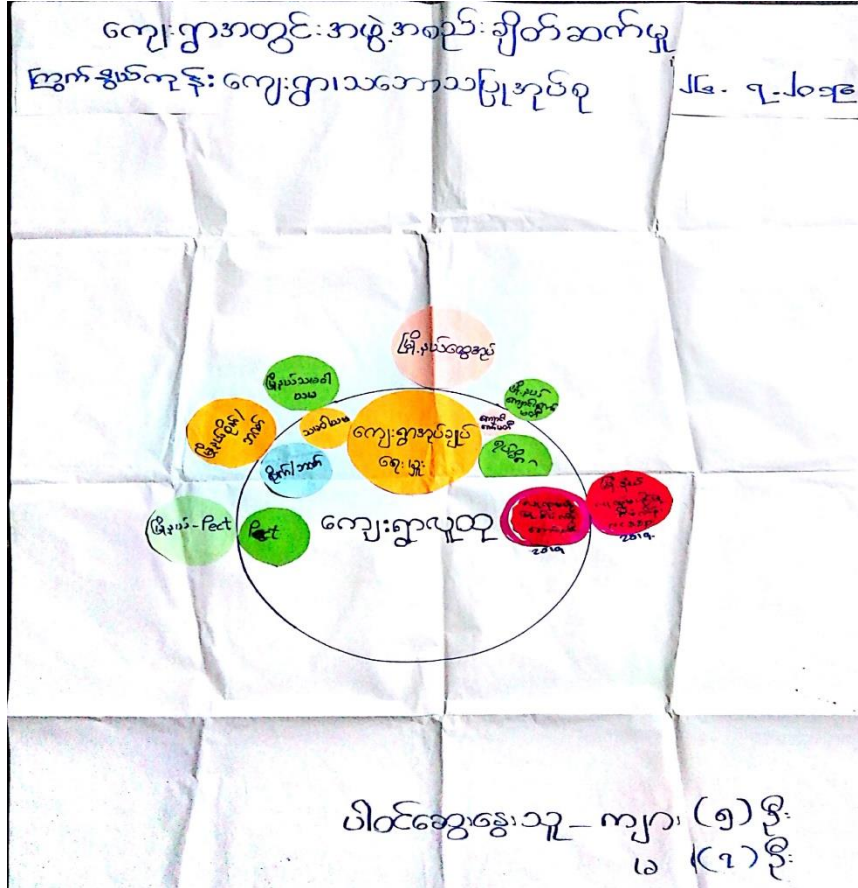 ကျေးရွာအတွင်းအဖွဲ့အစည်းချိတ်ဆက်မှု
ကြွက်နွယ်ကုန်းကျေးရွာ၊သဘောသပြုအုပ်စု
၂၆.၇.၂၀၁၉
မြို့နယ်ထွေအုပ်
မြို့နယ်သမဝါယမ
သမဝါယမ
ကျေးရွာအုပ်ချုပ်ရေးမှူး
စိုက်/ဘဏ်
မြို့နယ်စိုက်/ဘဏ်
မြို့နယ်-Pect
Pect
ကျေးရွာလူထု
2019
2019.
ပါဝင်ဆွေးနွေးသူ - ကျား (၅) ဦး
မ (၇) ဦး